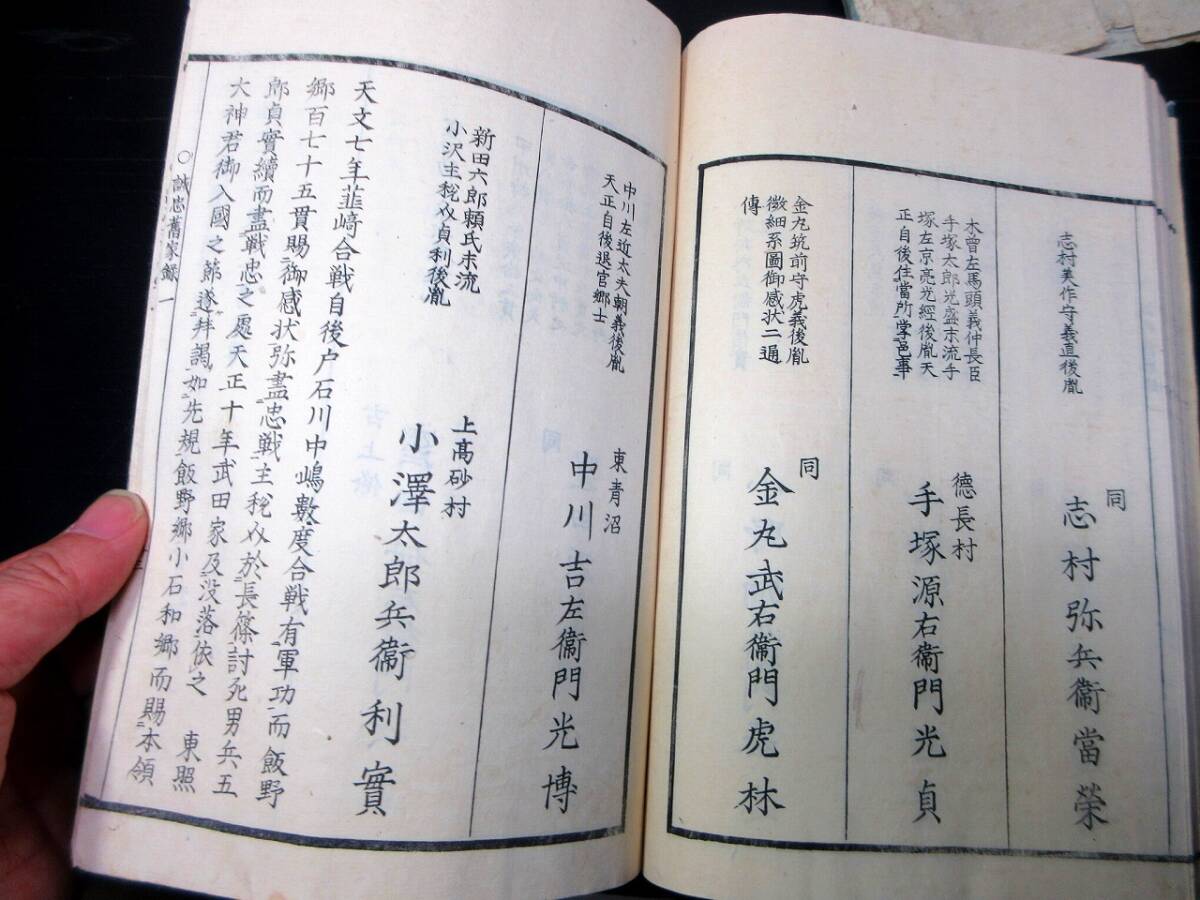 志村美作守義直後胤
同
志村弥兵衞當榮
木曽左馬頭義仲長臣
手塚太郎光盛末流手
塚左京亮光經後胤天
正自後住當所掌邑事
德長村
手塚源右衞門光貞
金丸筑前守虎義後胤
微細系圖御感状二通
傳
同
金丸武右衞門虎林
中川左近太夫朝義後胤
天正自後退官郷士
東青沼
中川吉左衞門光博
新田六郎頼氏末流
小沢主税介貞利後胤
上髙砂村
小澤太郎兵衞利實
天文七年韮﨑合戦自後户石川中嶋數度合戦有軍功而飯野
郷百七十五貫賜御感状弥盡忠戦主税介於長篠討死男兵五
郎貞實續而盡戦忠之處天正十年武田家及没落依之 東照
大神君御入國之節遂拜謁如先規飯野郷小石和郷而賜本領
○誠忠舊家録 一